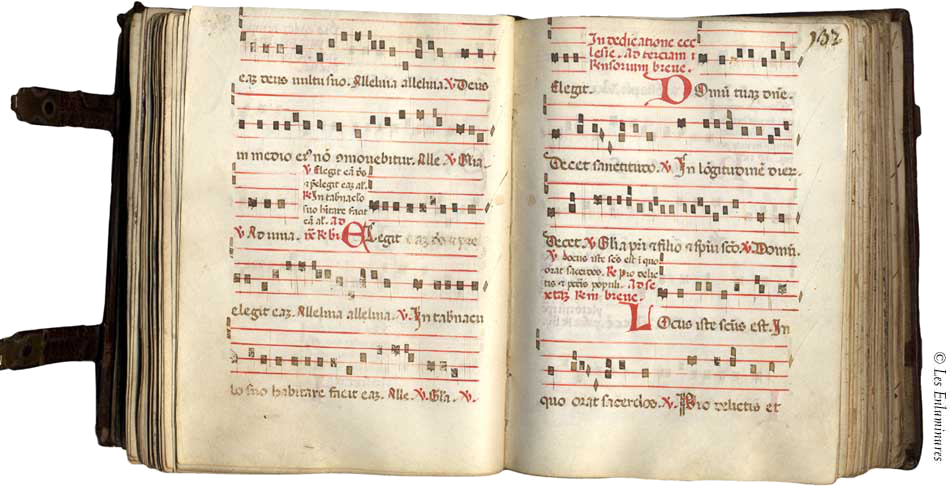 eaz deus vultu suo. Alleluia alleluia. V Deus
in medio ei9 nō 9movebitur. Alle V Glia.
V Elegit eā dō
t p̄elegit eaz al.
R In tabnaclo
suo hītare facit
eā al. Ad
V Ad una. nē R bī ELegit eaz dō t pre
elegit eaz. Alleluia alleluia. V. In tabnacu
lo suo habitare facit eaz. Alle. V. Gla. V.
132
In dedicatione ecc
lesie. Ad terciam i
Rensorium breve.
Elegit. DOmū tuaz dn̄e.
Decet sanctitudo. V. In lōgitudinē dier.
Decet. V Glia pri t filio t spiu sco. V. Domū.
V Locus iste scs est i quo
orat sacerdos. R pro delic
tis t pctis populi. Ad se
xtaz Rem breve.
LOcus iste scūs est. In
quo orat sacerdos. V. Pro delictis et
© Les Enluminures